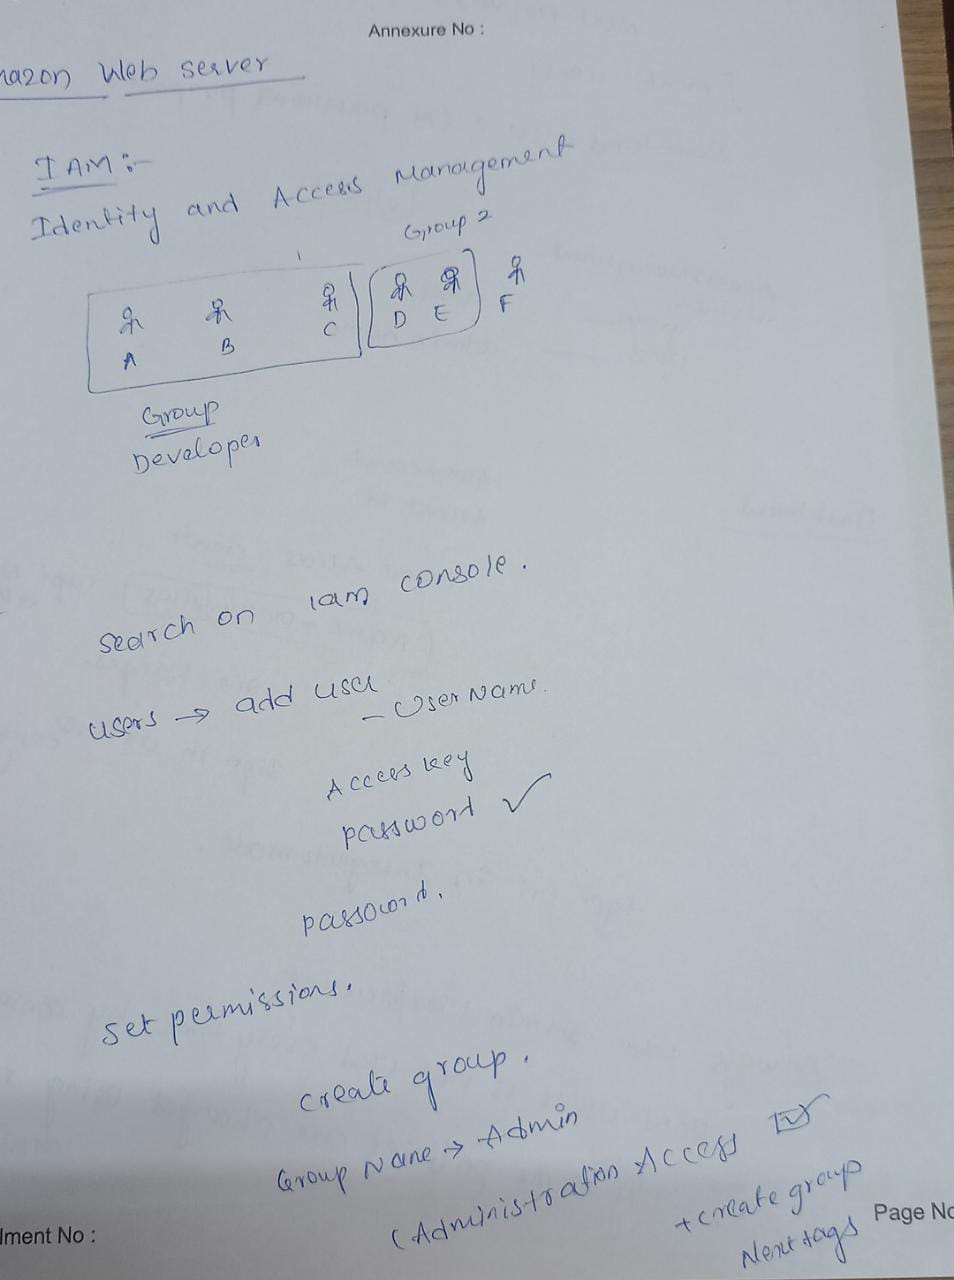 Annexure No :
mazon Web server
IAM :-
Identity and Access Management
Group 2
A B C D E F
Group
Developer
search on iam console.
users → add user
- UserName.
Access key
password ✓
password.
set permissions.
create group.
Group Name → Admin
(Administration Access ☑
+ create group
Next tags
lment No :
Page No